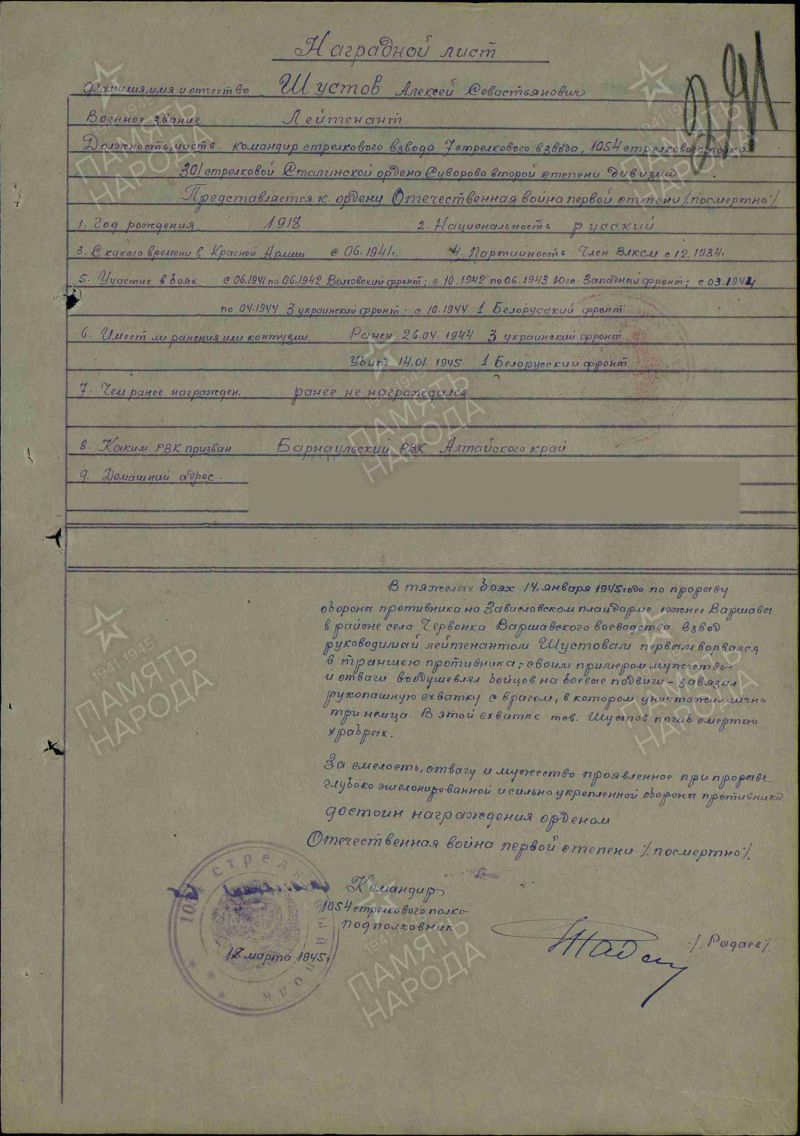 Наградной лист
Фамилия, имя и отчество Шустов Алексей Севастьянович
Военное звание Лейтенант
Должность, часть командир стрелкового взвода 7 стрелкового взвода, 1054 стрелкового полка
301 стрелковой Сталинской ордена Суворова второй степени дивизии
Представляется к. ордену Отечественная война первой степени /посмертно/
1. Год рождения 1918 2. Национальность русский
3. С какого времени в Красной Армии с 06.1941г. 4. Партийность Член ВЛКСМ с 12.1934г.
5. Участие в боях с 06.1941 по 06.1942 Волховский фронт; с 10.1942 по 06.1943 Юго-Западный фронт; с 03.1944
по 04.1944 3 украинский фронт; с 10.1944 1 Белорусский фронт
6. Имеет ли ранения или контузии. Ранен 26.04.1944 3 украинский фронт
Убит 14.01.1945 1 Белорусский фронт
7. Чем ранее награжден. ранее не награждался
8. Каким РВК призван Барнаульский РВК Алтайского край
9. Домашний адрес.
В тяжелых боях 14 января 1945 года по прорыву
обороны противника на Зависловском плацдарме южнее Варшавы
в районе села Червонка Варшавского воеводства взвод
руководимый лейтенантом Шустовым первым ворвался
в траншею противника; своим примером мужество
и отваги воодушевлял бойцов на боевые подвиги - завязал
рукопашную схватку с врагом, в котором уничтожил лично
три немца. В этой схватке тов. Шустов погиб смертью
храбрых.
За смелость, отвагу и мужество проявленное при прорыве
глубоко эшелонированной и сильно укрепленной обороны противника
достоин награждения орденом
Отечественная война первой степени /посмертно/.
Командир
1054 стрелкового полка
подполковник
/Радаев/
18 марта 1945г.
1054 стрелковый полк
1941-1945
ПАМЯТЬ
НАРОДА